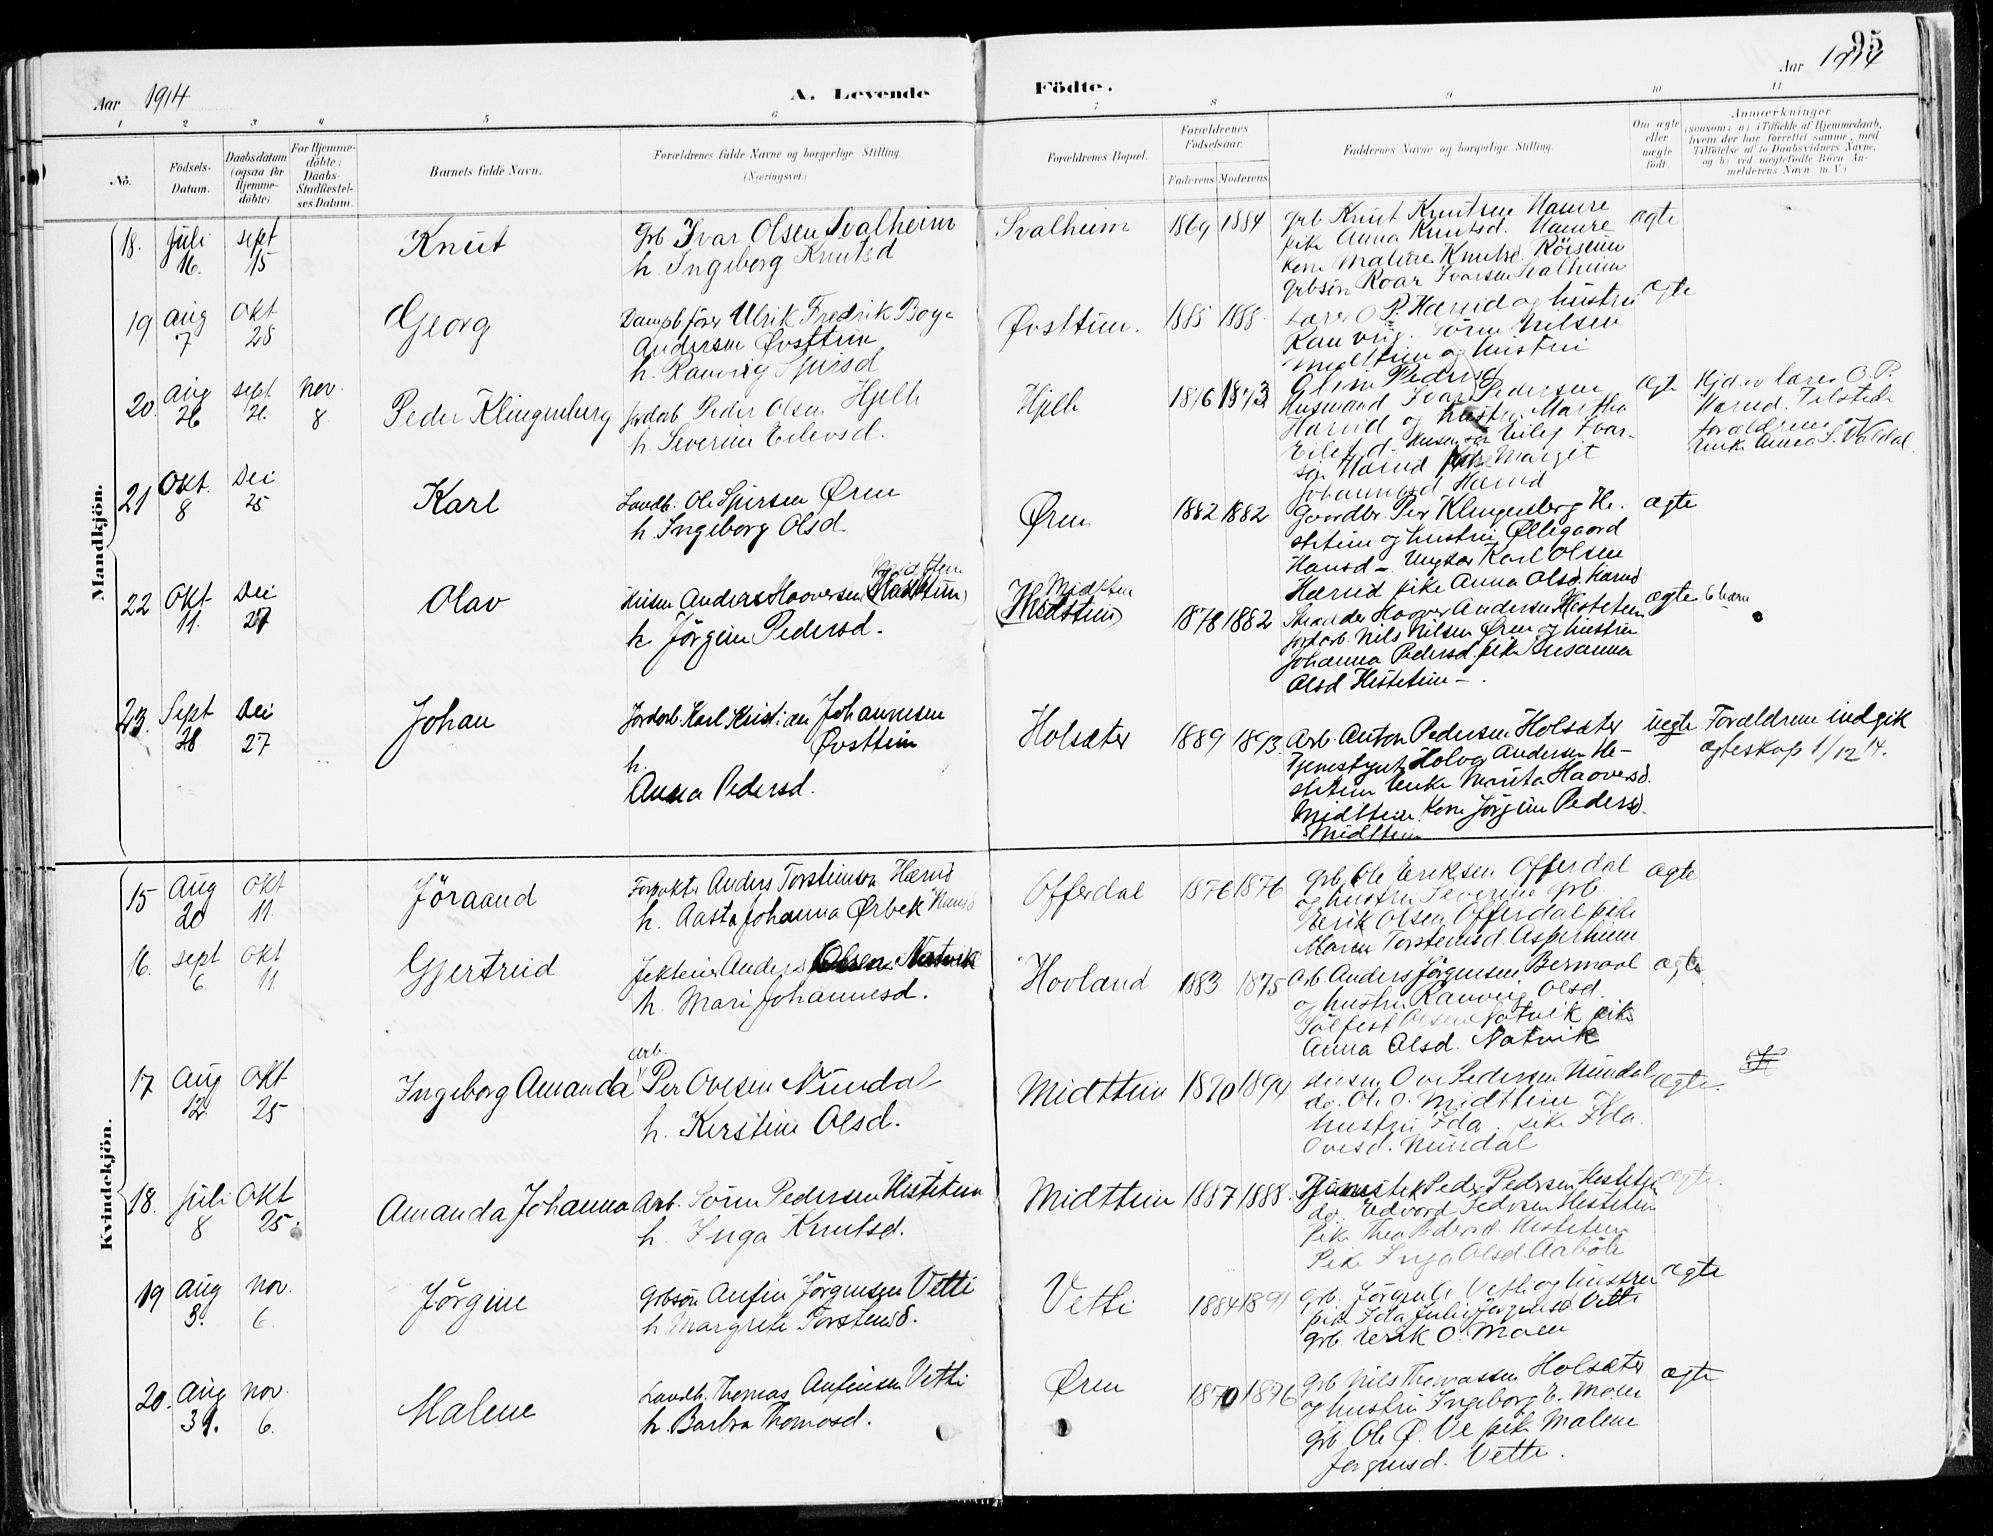 95
Aar 1914
A. Levende Födte.
Aar 1914
1 2 3 4 5 6 7 8 9 10 11
No.
Födsels-Datum.
Daabsdatum (ogsaa for Hjemme-döbte).
For Hjemme-döbte: Daabs-Stadfæstel-ses Datum.
Barnets fulde Navn.
Forældrenes fulde Navne og borgerlige Stilling.
(Næringsvei.)
Forældrenes Bopæl.
Forældrenes Födselsaar.
Faderens Moderens
Faddernes Navne og borgerlige Stilling.
Om ægte eller uægte født.
Anmærkninger
(saasom: a) i Tilfælde af Hjemmedaab, hvem der har forrettet samme, med Tilföielse af to Daabsvidners Navne, og b) ved uægtefödte Börn An-melderens Navn m. V.)
Mandkjön.
18. Juli 16. Sept 15 Knut
Grb Ivar Olsen Svalheim
h. Ingeborg Knutsd
Svalheim 1869 1884
Grb Knut Knutsen Hamre
pike Anna Knutsd. Hamre
Kone Malene Knutsd. Röiseim
Grbsön Roar Ivarsen Svalheim
ægte
19 Aug 7 Okt 25 Georg
Dampb.förer Ulrik Fredrik Boye
Andersen Øvsttun
h. Ranveig Sjursd
Øvsttun. 1885 1888
Lærer O. P. Hærud og hustru
Ranveig. Sören Nilsen
Midttun og hustru
Oline Pedersd
ægte
20. Aug 26 Sept 21. Nov. 8. Peder Klingenberg
Jordarb. Peder Olsen Hjelle
h. Severine Eilevsd.
Hjelle 1876 1873
Husmand Ivar Pedersen
Hærud og hustru Martha
Eilefsd. Husm.sön Eilef Ivar-
sen Hærud pike Marget
Johannesd Hærud
ægte
Hjd. v. lærer O. P.
Hærud. Tilstede
forældrene
Enke Anna S. Valdal
21 Okt. 8 Dec 25 Karl
Landb. Ole Sjursen Øren
h Ingeborg Olsd.
Øren 1882 1882
Gaardbr. Per Klingenberg He-
stetun og hustru Øllegaard
Hansd -. Ungkar Karl Olsen
Hærud pike Anna Olsd. Hærud
ægte
22 Okt 11. Dec 27 Olav
Husm Anders Haaversen
h Jörgine Pedersd.
Midttun 1878 1882
Skrædder Haaver Andersen Hestetun
Jordarb. Nils Nilsen Øren og hustru
Johanna Pedersd. pike Susanna
Olsd Hestetun -.
ægte 6 barn
23. Sept 28 Dec 27 Johan
Jordarb. Karl Kristian Johannesen
Øvsttun
h.
Anna Pedersd.
Holsæter 1889 1893.
Arb. Anton Pedersen Holsæter
Tjenestegut Holva Andersen He-
stetun Enke Marita Haaversd.
Midttun. Kone Jörgine Pedersd.
Midttun
uegte
Forældrene indgik
ægteskap 1/12 14.
Kvindekjön.
15 Aug 20 Okt 11. Jöraand
Forpakter Anders Torsteinson Hærud
h. Aasta Johanna Ørbek Hansd
Offerdal 1876 1876
Grb. Ole Eriksen Offerdal
og hustru Severine Grb
Erik Olsen Offerdal pike
Maren Torsteinsd Asperheim
ægte
16. Sept 6 Okt 11. Gjertrud
Jekteeier Anders Olsen Natvik
h. Mari Johannesd.
Hovland 1883 1875
Arb. Anders Jörgensen Bermaal
og hustru Ranveig Olsd.
Sölfest Olsen Natvik pike
Anna Olsd. Natvik
ægte
17 Aug 12. Okt 25 Ingeborg Amanda
Arb.
Per Ovesen Nundal
h. Kerstine Olsd.
Midttun 1890 1894
Husm Ove Pedersen Nundal
do. Ole O. Midttun og
hustru Ida. pike Ida
Ovesd. Nundal
ægte.
18. Juli 8 Okt 25. Amanda Johanna
Arb. Sören Pedersen Hestetun
h. Inga Knutsd.
Midttun 1887 1888.
Peder Pedersen Hestetun
do. Edvard Pedersen Hestetun
Pike Thea Pedersd. Hestetun
Pike Inga Olsd. Aaböle
ægte.
19 Aug 3. Nov. 6. Jörgine
Grbsön Anfin Jörgensen Vetti
h. Margrete Torsteinsd.
Vetti 1884 1891
Grb. Jörgen A. Vetti og hustru
pike Ida Julie Jörgensd Vetti
Grb. Erik O. Moen
ægte
20. Aug 31. Nov. 6. Malene
Landb. Thomas Anfinsen Vetti
h. Barbra Thomasd.
Øren 1870 1876
Grb Nils Thomassen Holsæter
og hustru Ingeborg E. Moen
Grb Ole Ø. Ve pike Malene
Jörgensd. Vetti.
ægte